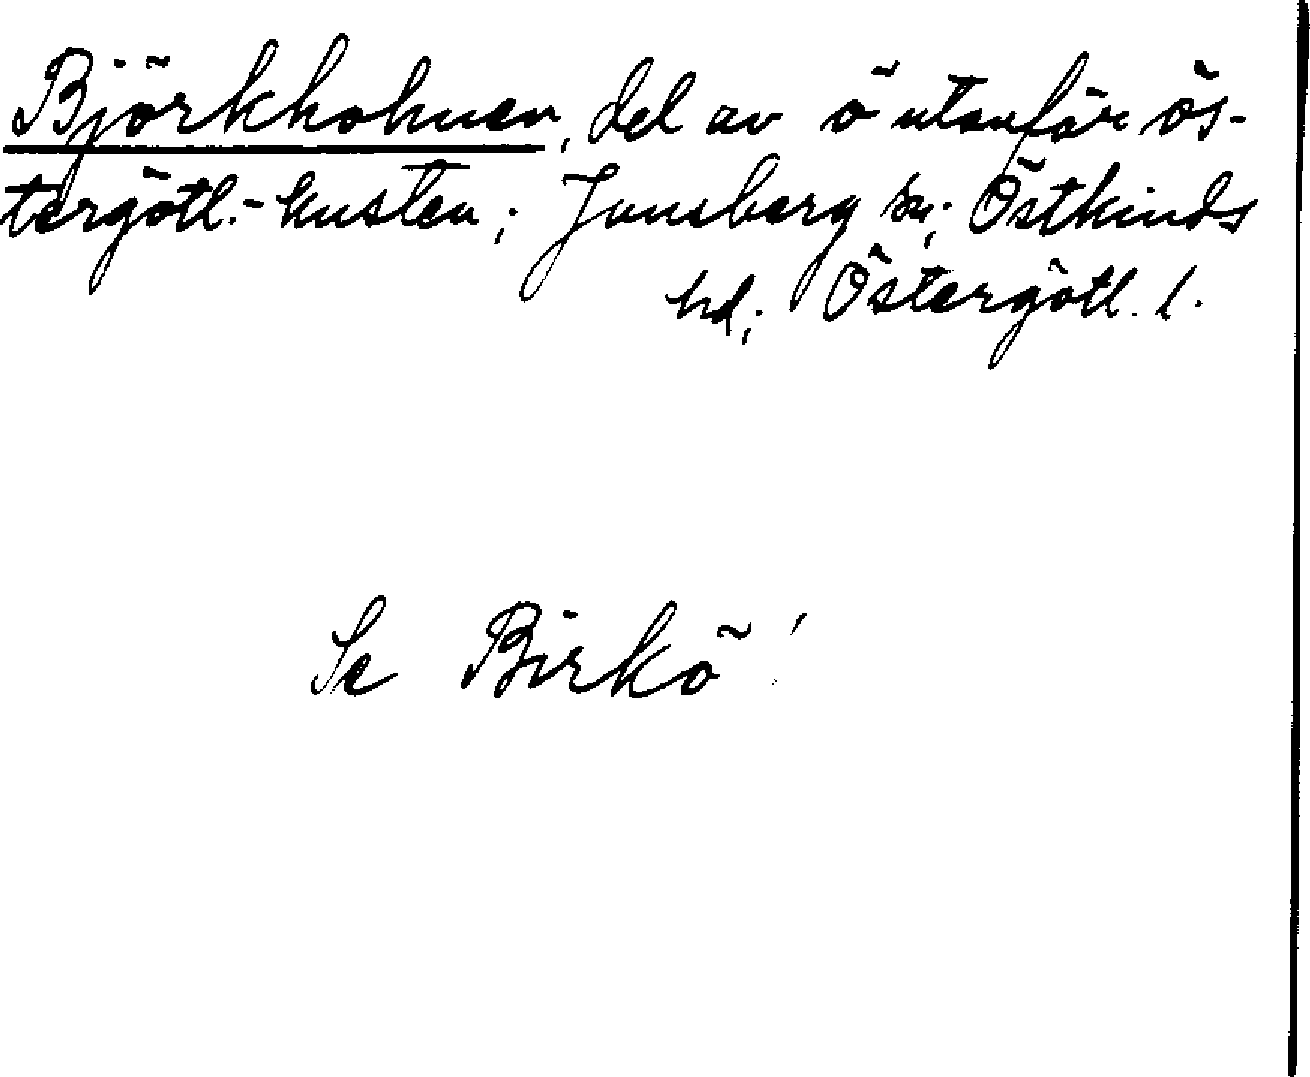 Björkholmen, del av ö utanför ös-
tergötl.-kusten; Jonsberg sn; Östkinds
hd; Östergötl. l.
Se Birkö!